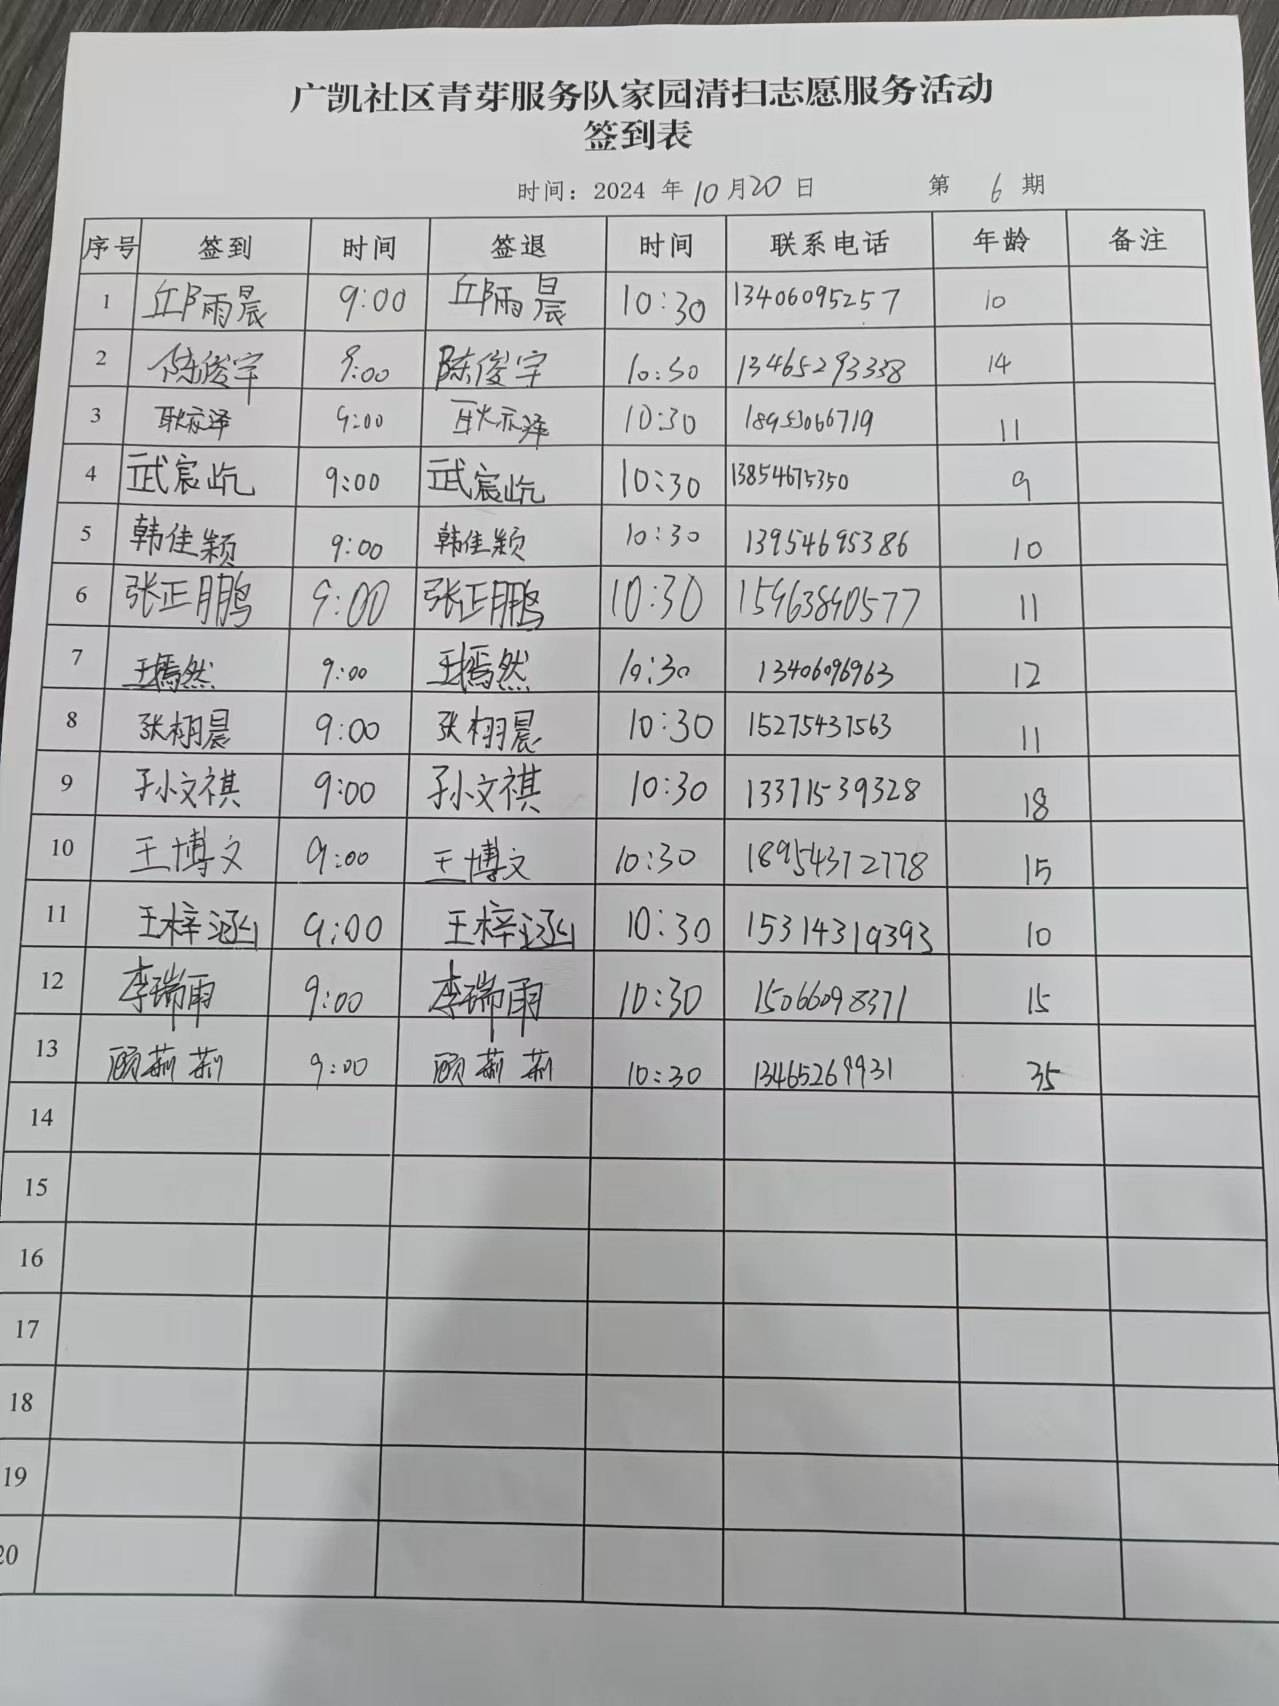 广凯社区青芽服务队家园清扫志愿服务活动
签到表
时间：2024 年 10 月 20 日 第 6 期
序号 签到 时间 签退 时间 联系电话 年龄 备注
1 邱雨晨 9:00 邱雨晨 10:30 13406095257 10
2 陈俊宇 9:00 陈俊宇 10:30 13465293338 14
3 耿亦泽 9:00 耿亦泽 10:30 18953066719 11
4 武宸屹 9:00 武宸屹 10:30 13854675350 9
5 韩佳颖 9:00 韩佳颖 10:30 13954695386 10
6 张正鹏 9:00 张正鹏 10:30 15963890577 11
7 王嫣然 9:00 王嫣然 10:30 1340696963 12
8 张栩晨 9:00 张栩晨 10:30 15275431563 11
9 孙文祺 9:00 孙文祺 10:30 13371539328 18
10 王博文 9:00 王博文 10:30 18954372778 15
11 王梓涵 9:00 王梓涵 10:30 15314319393 10
12 李瑞雨 9:00 李瑞雨 10:30 15066098371 15
13 顾莉莉 9:00 顾莉莉 10:30 13465269931 35
14
15
16
17
18
19
20